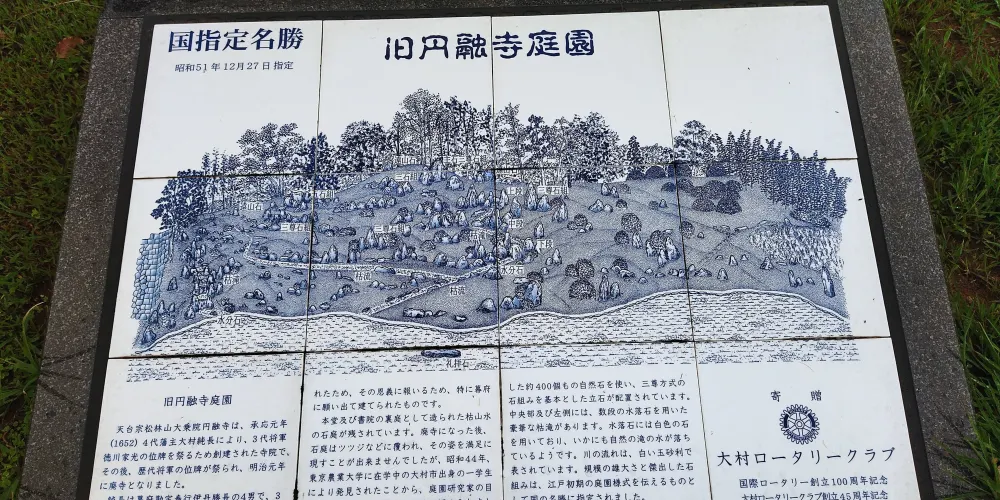 国指定名勝
昭和51年12月27日指定
旧円融寺庭園
三石組
三尊石組
上段
三尊石組
三尊石組
中段
下段
枯滝
枯滝
枯滝
水分石
水分石
礼拝石
旧円融寺庭園
天台宗松林山大乗院円融寺は、承応元年
(1652)4代藩主大村純長により、3代将軍
徳川家光の位牌を祭るため創建された寺院で、
その後、歴代将軍の位牌が祭られ、明治元年
に廃寺となりました。
純長は幕府勘定奉行伊丹勝長の4男で、3
れたため、その恩義に報いるため、特に幕府
に願い出て建てられたものです。
本堂及び書院の裏庭として造られた枯山水
の石庭が残されています。廃寺になった後、
石庭はツツジなどに覆われ、その姿を満足に
現すことが出来ませんでしたが、昭和44年、
東京農業大学に在学中の大村市出身の一学生
により発見されたことから、庭園研究家の目
した約400個もの自然石を使い、三尊方式の
石組みを基本とした立石が配置されています。
中央部及び左側には、数段の水落石を用いた
豪華な枯滝があります。水落石には白色の石
を用いており、いかにも自然の滝の水が落ち
ているようです。川の流れは、白い玉砂利で
表されています。規模の雄大さと傑出した石
組みは、江戸初期の庭園様式を伝えるものと
して国の名勝に指定されました。
寄贈
大村ロータリークラブ
国際ロータリー創立100周年記念
大村ロータリークラブ創立45周年記念